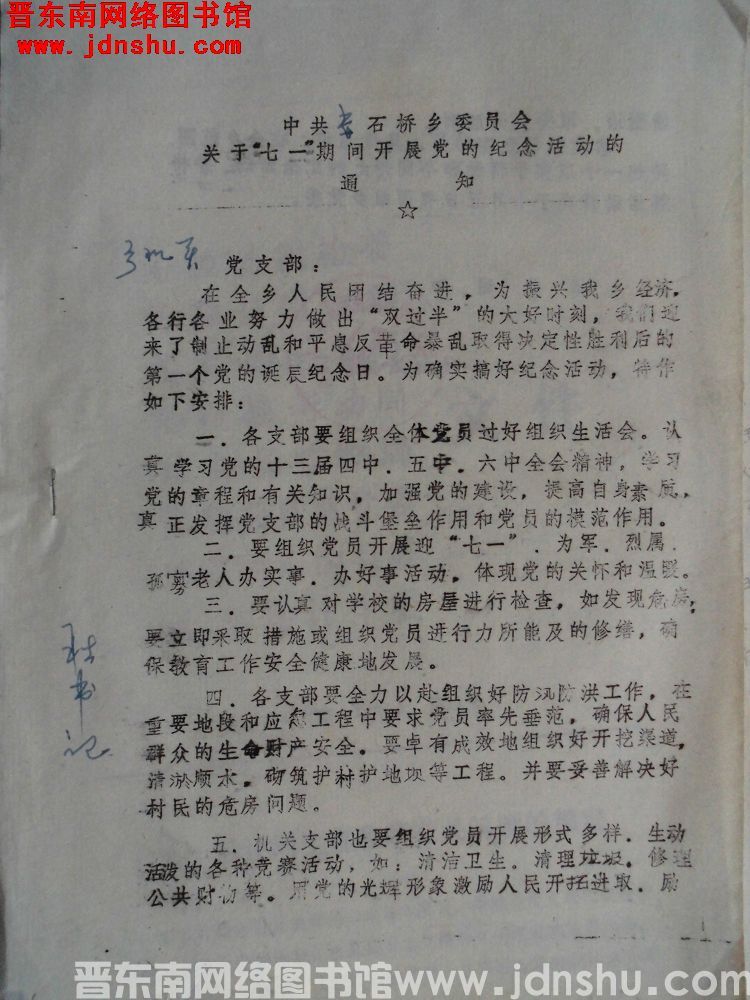 晋东南网络图书馆
www.jdnshu.com
中共 石桥乡委员会
关于“七一”期间开展党的纪念活动的
通 知
☆
党支部：
在全乡人民团结奋进，为振兴我乡经济，
各行各业努力做出“双过半”的大好时刻，我们迎
来了制止动乱和平息反革命暴乱取得决定性胜利后的
第一个党的诞辰纪念日。为确实搞好纪念活动，特作
如下安排：
一．各支部要组织全体党员过好组织生活会。认
真学习党的十三届四中．五中．六中全会精神，学习
党的章程和有关知识，加强党的建设，提高自身素质，
真正发挥党支部的战斗堡垒作用和党员的模范作用。
二．要组织党员开展迎“七一”．为军．烈属．
孤寡老人办实事．办好事活动，体现党的关怀和温暖。
三．要认真对学校的房屋进行检查，如发现危房，
要立即采取措施或组织党员进行力所能及的修缮，确
保教育工作安全健康地发展。
四．各支部要全力以赴组织好防汛防洪工作，在
重要地段和应急工程中要求党员率先垂范，确保人民
群众的生命财产安全。要卓有成效地组织好开挖渠道，
清淤顺水．砌筑护村护地坝等工程。并要妥善解决好
村民的危房问题。
五．机关支部也要组织党员开展形式多样．生动
活泼的各种竞赛活动，如：清洁卫生。清理垃圾．修理
公共财物等。用党的光辉形象激励人民开拓进取．励
书记
晋东南网络图书馆www.jdnshu.com